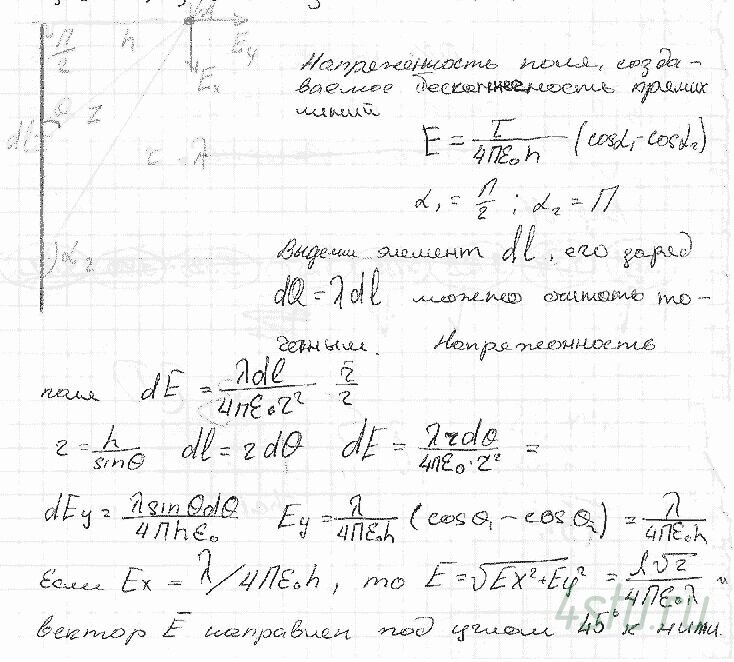 h E_y
П/2 E_x
θ r
dl τ λ
) α₂
Напреженность поля, созда-
ваемое бесконечность прямих
линий
E = τ/(4πε₀h) (cosα₁ - cosα₂)
α₁ = П/2 ; α₂ = П
Выдели элемент dl, его заряд
dQ = λdl можно считать то-
чечным. Напреженность
поля dE = λdl/(4πε₀r²) r̄/r
r = h/sinθ dl = rdθ dE = λrdθ/(4πε₀·r²) =
dEy = λsinθdθ/(4πhε₀) Ey = λ/(4πε₀h) (cosθ₁ - cosθ₂) = λ/(4πε₀h)
Если Ex = λ/4πε₀h, то E = √(Ex²+Ey²) = λ√2/(4πε₀λ) и
вектор E̅ направлен под углом 45° к нити.
4stu.ru